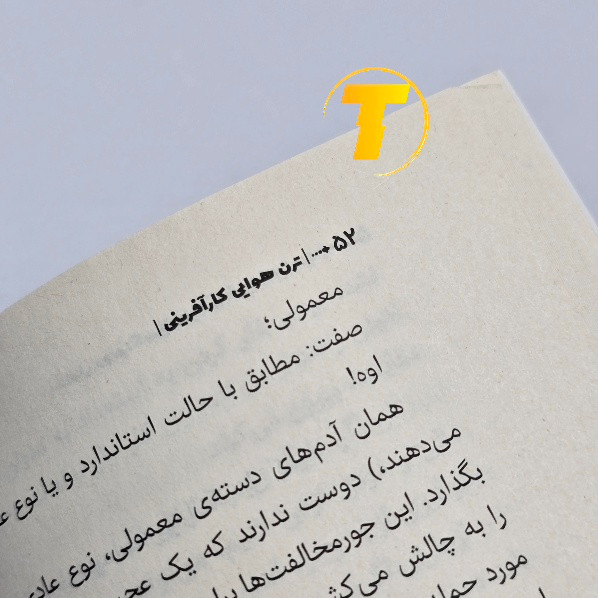 T
۵۲ ...| ترن هوایی کارآفرینی |
معمولی؛
صفت: مطابق با حالت استاندارد و یا نوع
اوه!
همان آدم‌های دسته‌ی معمولی، نوع عادی
می‌دهند،) دوست ندارند که یک
بگذارد. این جورمخالفت‌ها
را به چالش می‌کشد
مورد